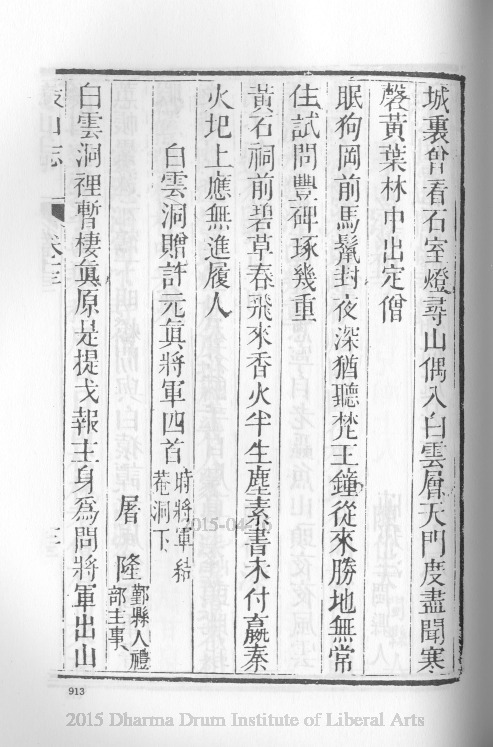 城裏曾看石室燈尋山偶入白雲層天門度盡聞寒
磬黃葉林中出定僧
眠狗岡前馬鬣封夜深猶聽梵王鐘從來勝地無常
住試問豐碑琢幾重
黃石祠前碧草春飛來香火半生塵素書未付嬴秦
火圯上應無進履人
白雲洞贈許元眞將軍四首
時將軍結
菴洞下
屠隆
鄞縣人禮
部主事
白雲洞裡暫棲眞原是提戈報主身爲問將軍出山
山志
卷三
三
2015-04
913
2015 Dharma Drum Institute of Liberal Arts